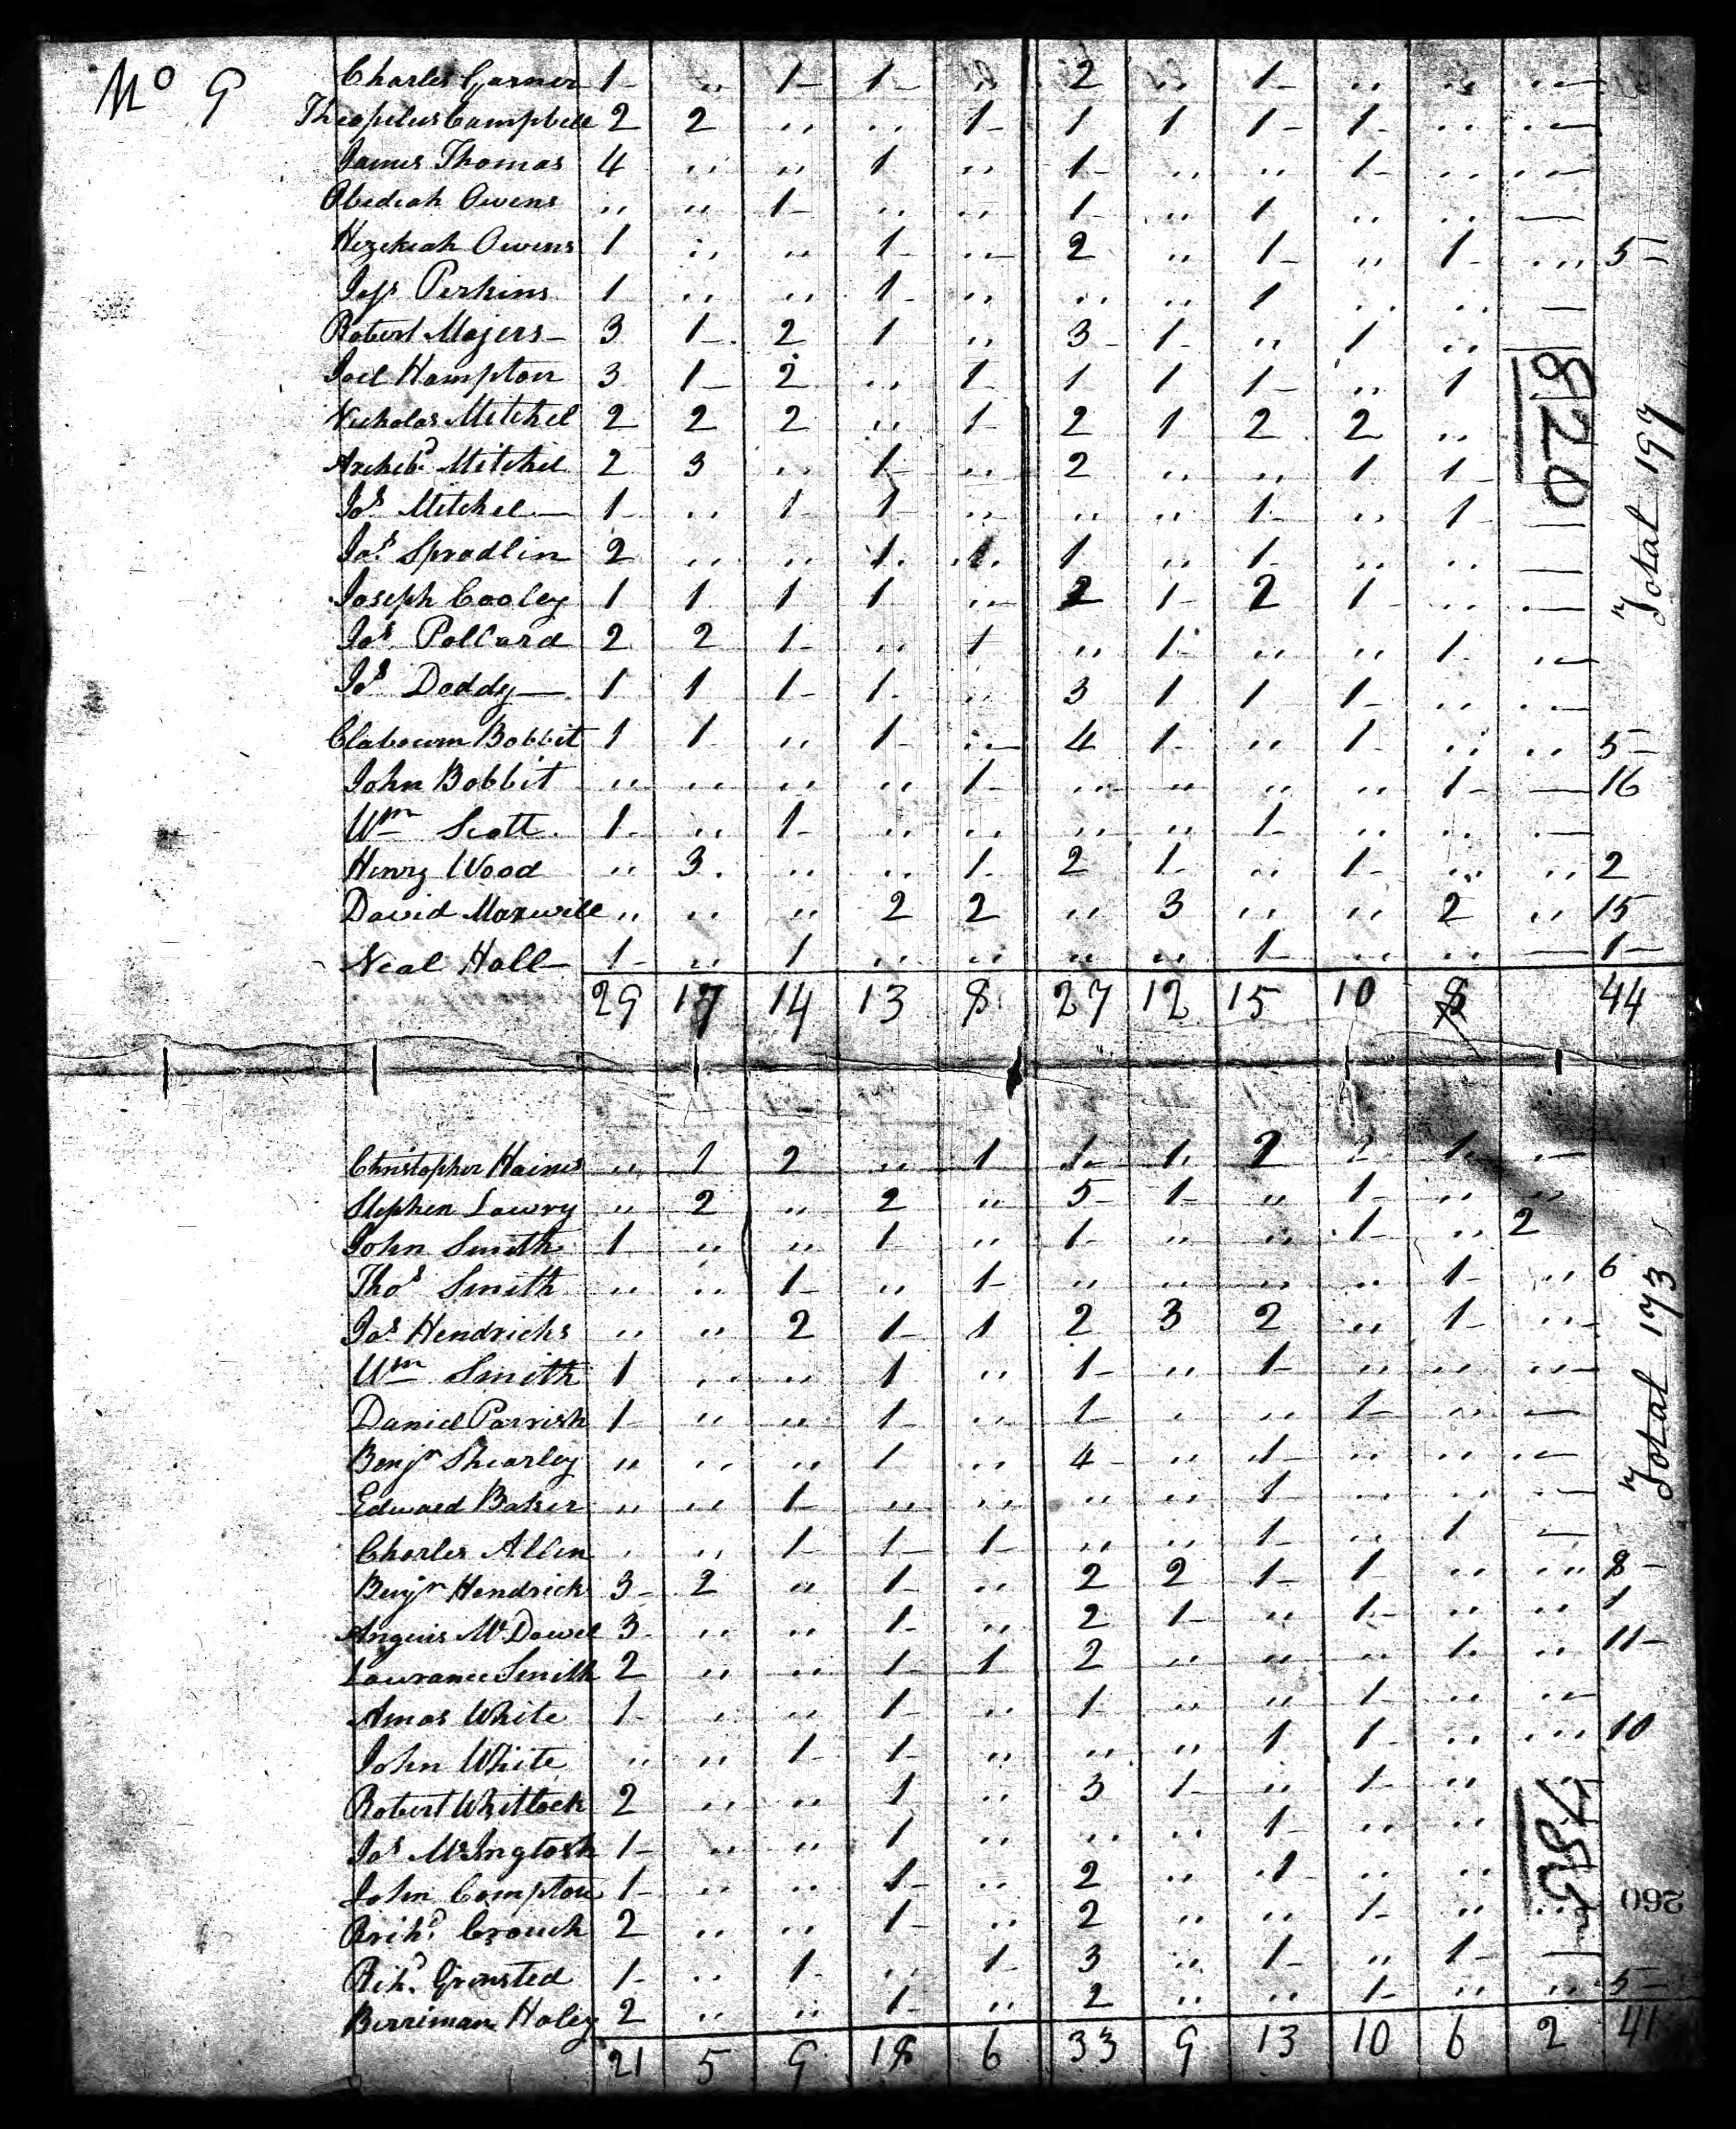 No 9
Charles Garner 1 - „ 1 - 1 - „ 2 „ 1 - „ „ „ —
Theopilus Campbell 2 2 „ „ 1 - 1 1 1 - 1 - „ „ —
James Thomas 4 „ „ 1 „ 1 - „ „ 1 - „ „ —
Obediah Owens „ „ 1 - „ „ 1 - „ 1 „ „ —
Hezekiah Owens 1 „ „ 1 - „ 2 „ 1 - „ 1 - „ 5 -
Perkins 1 „ „ 1 - „ „ „ 1 „ „ —
Robert Majers - 3 1 - 2 1 „ 3 - 1 - „ 1 „
Joel Hampton 3 1 - 2 „ 1 - 1 1 1 - „ 1
Nicholas Mitchel 2 2 2 „ 1 - 2 1 2 2 „
Archeb.d Mitchel 2 3 „ 1 - „ 2 „ „ 1 1 -
Jas Mitchel — 1 - „ 1 - 1 - „ „ „ 1 - „ 1 - —
Jas Spradlin 2 „ „ 1 1 1 „ 1 - „ „ —
Joseph Cooley 1 1 1 1 „ 2 1 - 2 1 - „ —
Jas Pollard 2 2 1 - „ 1 „ 1 - „ „ 1 - „ —
Jas Doddy — 1 1 1 - 1 - „ 3 1 1 1 - „ „ —
Clabourn Bobbit 1 1 - „ 1 - „ 4 1 - „ 1 - „ „ 5 -
John Bobbit „ „ „ „ 1 - „ „ „ „ 1 - — 16
Wm Scott 1 - „ 1 - „ „ „ „ 1 - „ „ —
Henry Wood „ 3 „ „ 1 - 2 1 - „ 1 - „ „ 2
David Maxwell „ „ „ 2 2 „ 3 „ „ 2 „ 15
Neal Hall - 1 - „ 1 „ „ „ „ 1 - „ „ — 1 -
29 17 14 13 8 27 12 15 10 8 44
820
Total 197
Christopher Haines „ 1 2 „ 1 1 - 1 - 2 1 - „ —
Stephen Lowry „ 2 „ 2 „ 5 - 1 - „ 1 - „ „
John Smith 1 „ „ 1 „ 1 - „ „ 1 - „ 2
Thos Smith „ „ 1 - „ 1 - „ „ „ „ 1 - „ 6
Jas Hendricks „ „ 2 1 - 1 2 3 2 „ 1 - „ -
Wm Smith 1 „ „ 1 „ 1 - „ 1 - „ „ „ —
Daniel Parrish 1 - „ „ 1 - „ 1 - „ „ 1 - „ —
Benjn Shearley „ „ „ 1 „ 4 - „ 1 - „ „ „ —
Edward Baker „ „ 1 - „ „ „ „ 1 - „ „ „ —
Charles Allen „ „ 1 - 1 - 1 - „ „ 1 - „ 1 —
Benjn Hendrick 3 - 2 „ 1 - „ 2 2 1 - 1 - „ „ 8 -
Anguis McDowel 3 - „ „ 1 - „ 2 1 - „ 1 - „ „ 1
Lawrance Smith 2 „ „ 1 - 1 2 „ „ „ 1 - „ 11 -
Amos White 1 - „ „ 1 - „ 1 - „ „ 1 - „ „ —
John White „ „ 1 - 1 - „ „ „ 1 1 - „ „ 10
Robert Whitlock 2 „ „ 1 „ 3 1 - „ 1 - „
Jas McIngtosh 1 - „ „ 1 „ „ „ 1 - „ „
John Compton 1 - „ „ 1 - „ 2 „ 1 „ „
Richd Crouch 2 „ „ 1 - „ 2 „ „ 1 - „ „
Rihd Grinsted 1 - „ 1 - „ 1 3 „ 1 - „ 1 - —
Berriman Holey 2 „ „ 1 - „ 2 „ „ 1 - „ „ 5 -
21 5 9 18 6 33 9 13 10 6 2 41
Total 173
783
260